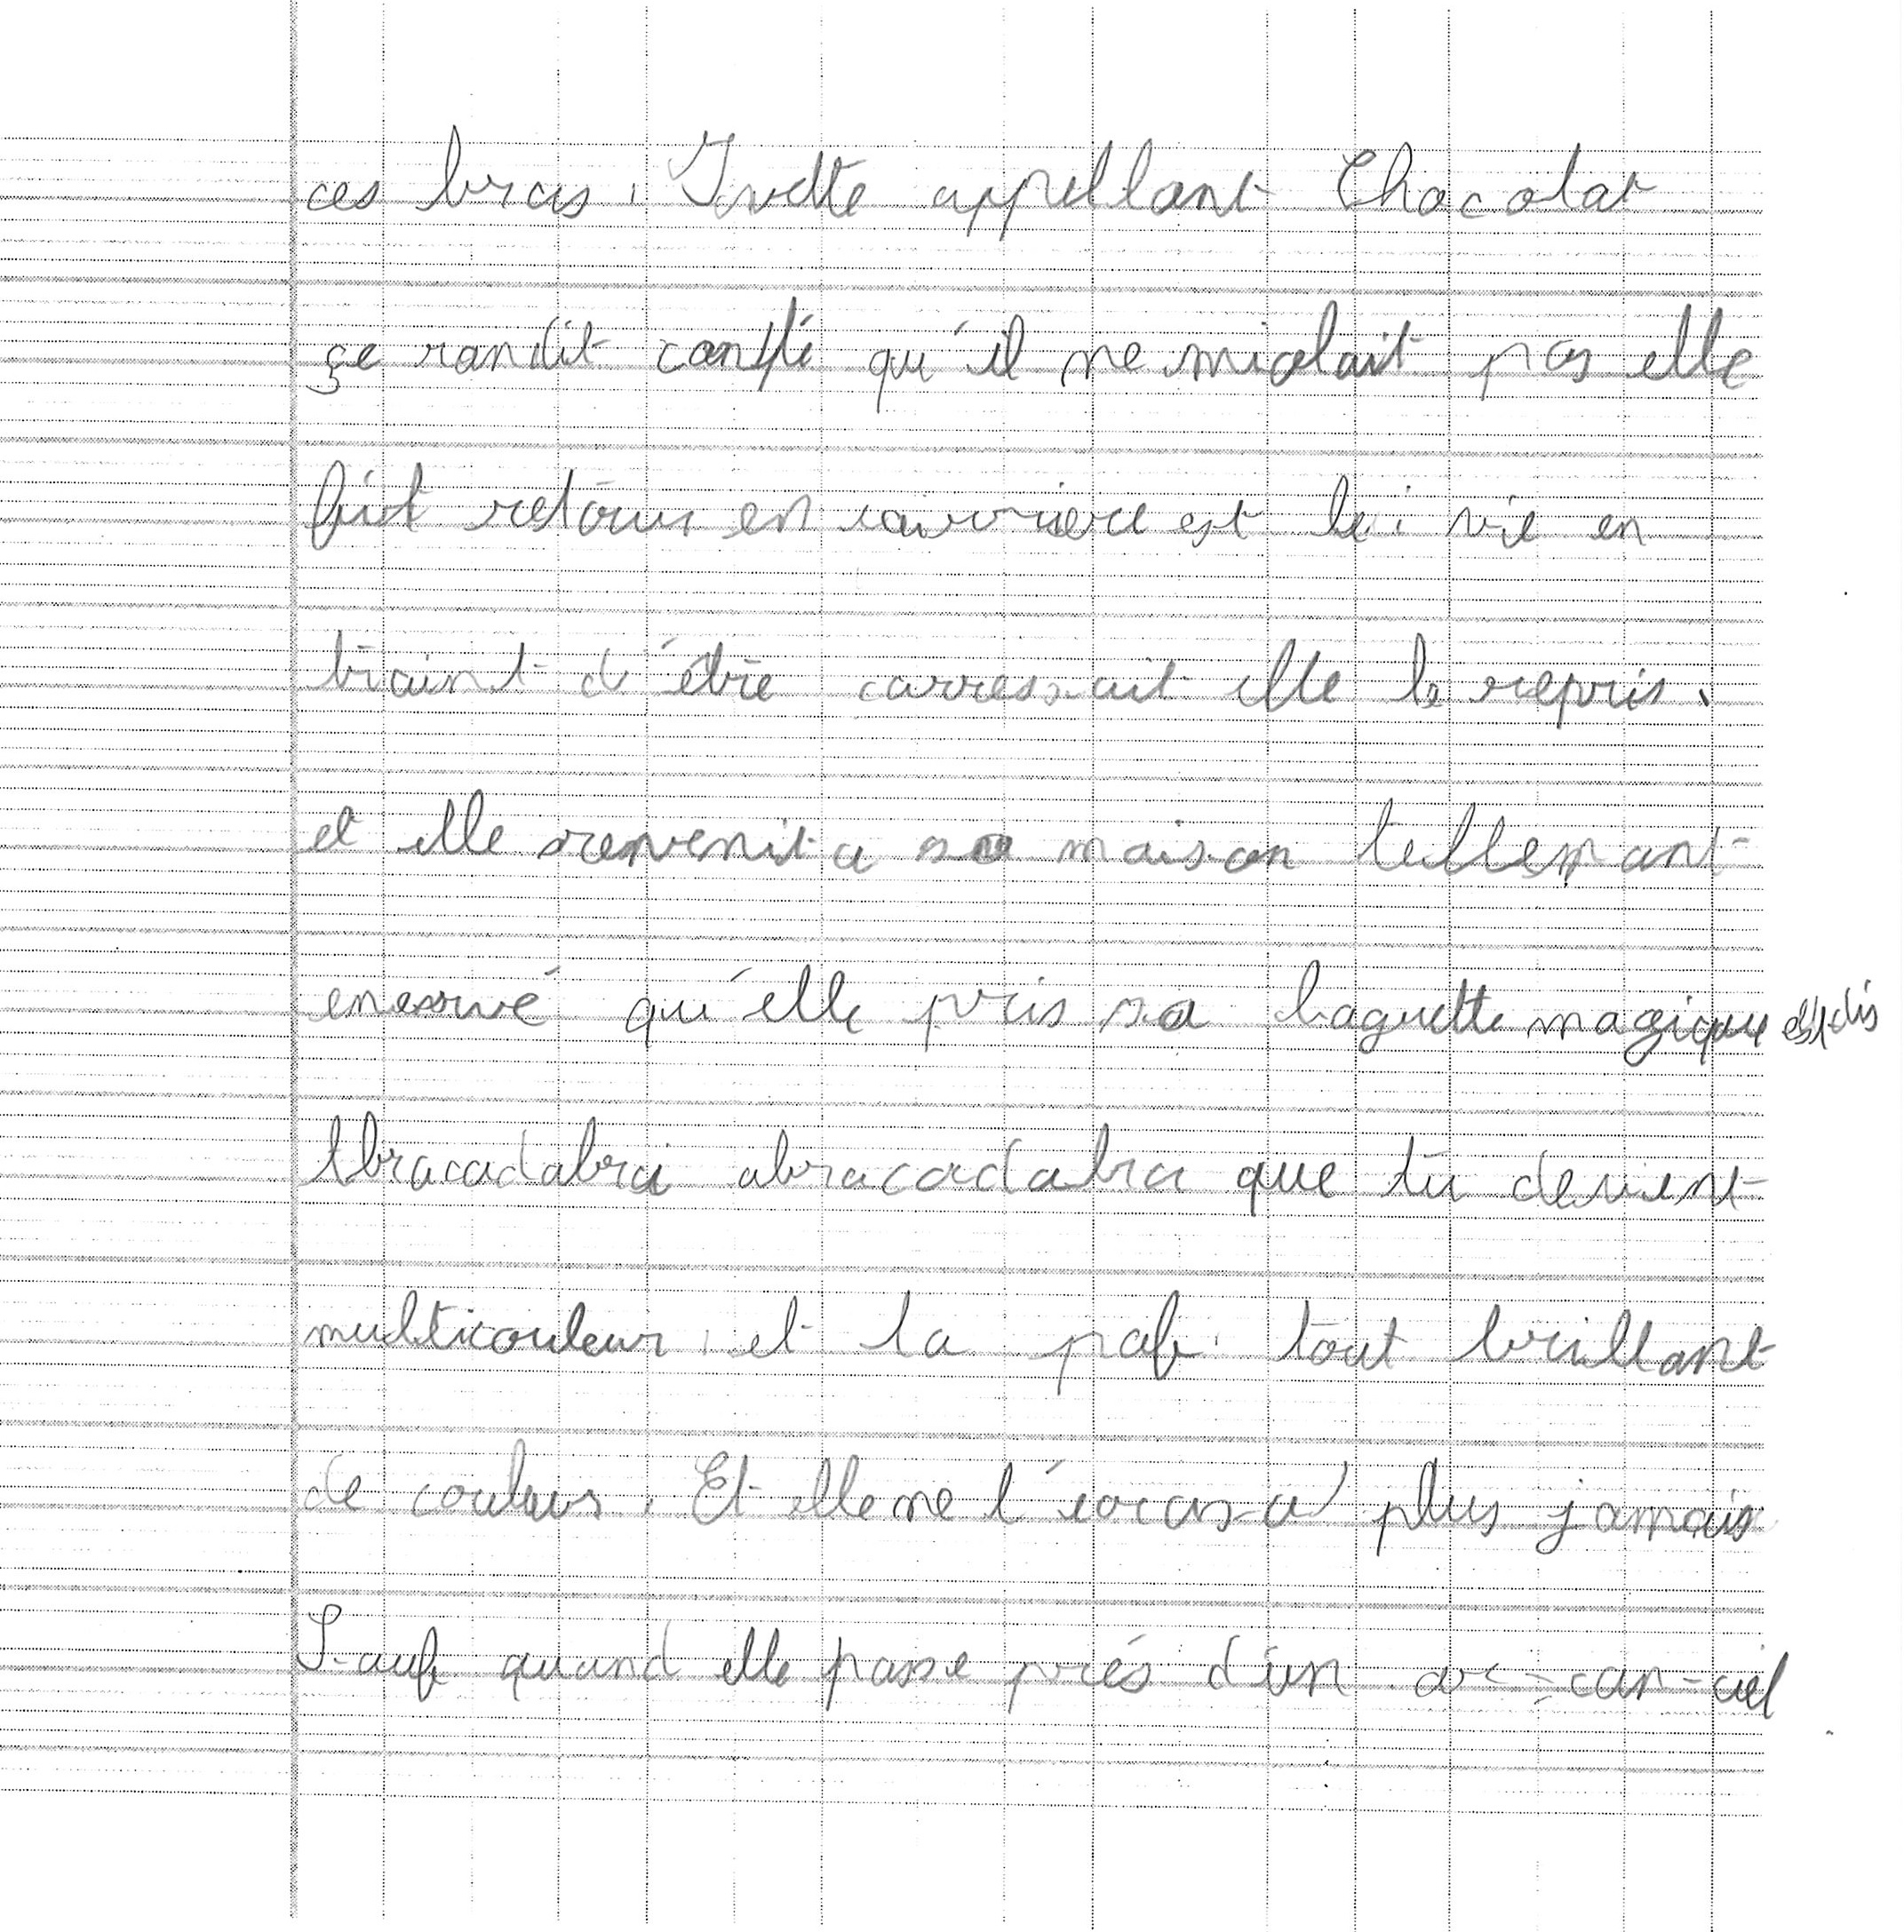 ces bras. Ivette appellant Chocolat
çe randit conté qu'il ne miolait pas elle
fit retour en airriere est le vie en
traint d'étre carressait elle le repris.
et elle revenit a sa maison tellemant
enervé qu'elle pris sa baguette magique est dis
Abracadabra abracadabra que tu devient
multicouleur et la paf tout brillant
de couleurs. Et elle ne l'écrasa plus jamais
Sauf quand elle passe prés d'un arc-can-ciel